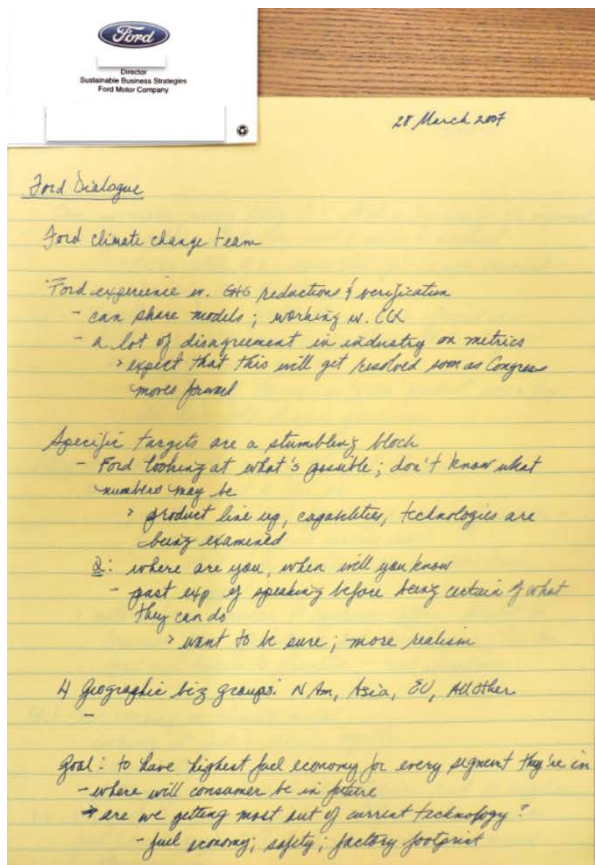 Ford
Director
Sustainable Business Strategies
Ford Motor Company
28 March 2007
Ford Dialogue
Ford climate change team
Ford experience w. GHG reductions & verification
- can share models; working w. CCX
- a lot of disagreement in industry on metrics
> expect that this will get resolved soon as Congress
moves forward
Specific targets are a stumbling block
- Ford looking at what's possible; don't know what
numbers may be
> product line up, capabilities, technologies are
being examined
Q: where are you, when will you know
- past exp of speaking before being certain of what
they can do
> want to be sure; more realism
4 geographic biz groups: N Am, Asia, EU, All Other
-
Goal: to have highest fuel economy for every segment they're in
- where will consumer be in future
→ are we getting most out of current technology?
- fuel economy; safety; factory footprint